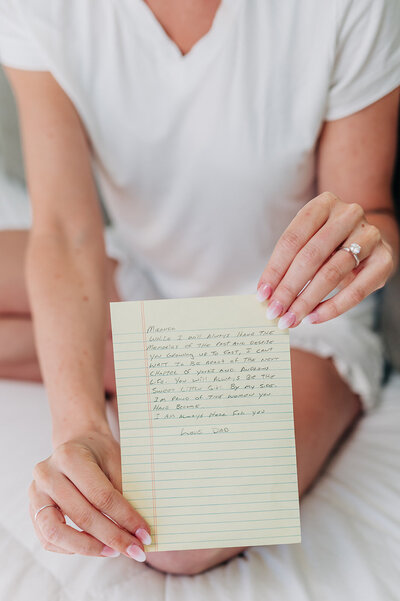 MIRANDA
WHILE I WILL ALWAYS HAVE THE
MEMORIES OF THE PAST AND DESPITE
YOU GROWING UP TO FAST, I CAN'T
WAIT TO BE APART OF THE NEXT
CHAPTER OF YOURS AND ANDREWS
LIFE. YOU WILL ALWAYS BE THE
SWEET LITTLE GIRL BY MY SIDE.
I'M PROUD OF THE WOMEN YOU
HAVE BECOME.
I AM ALWAYS HERE FOR YOU
LOVE DAD